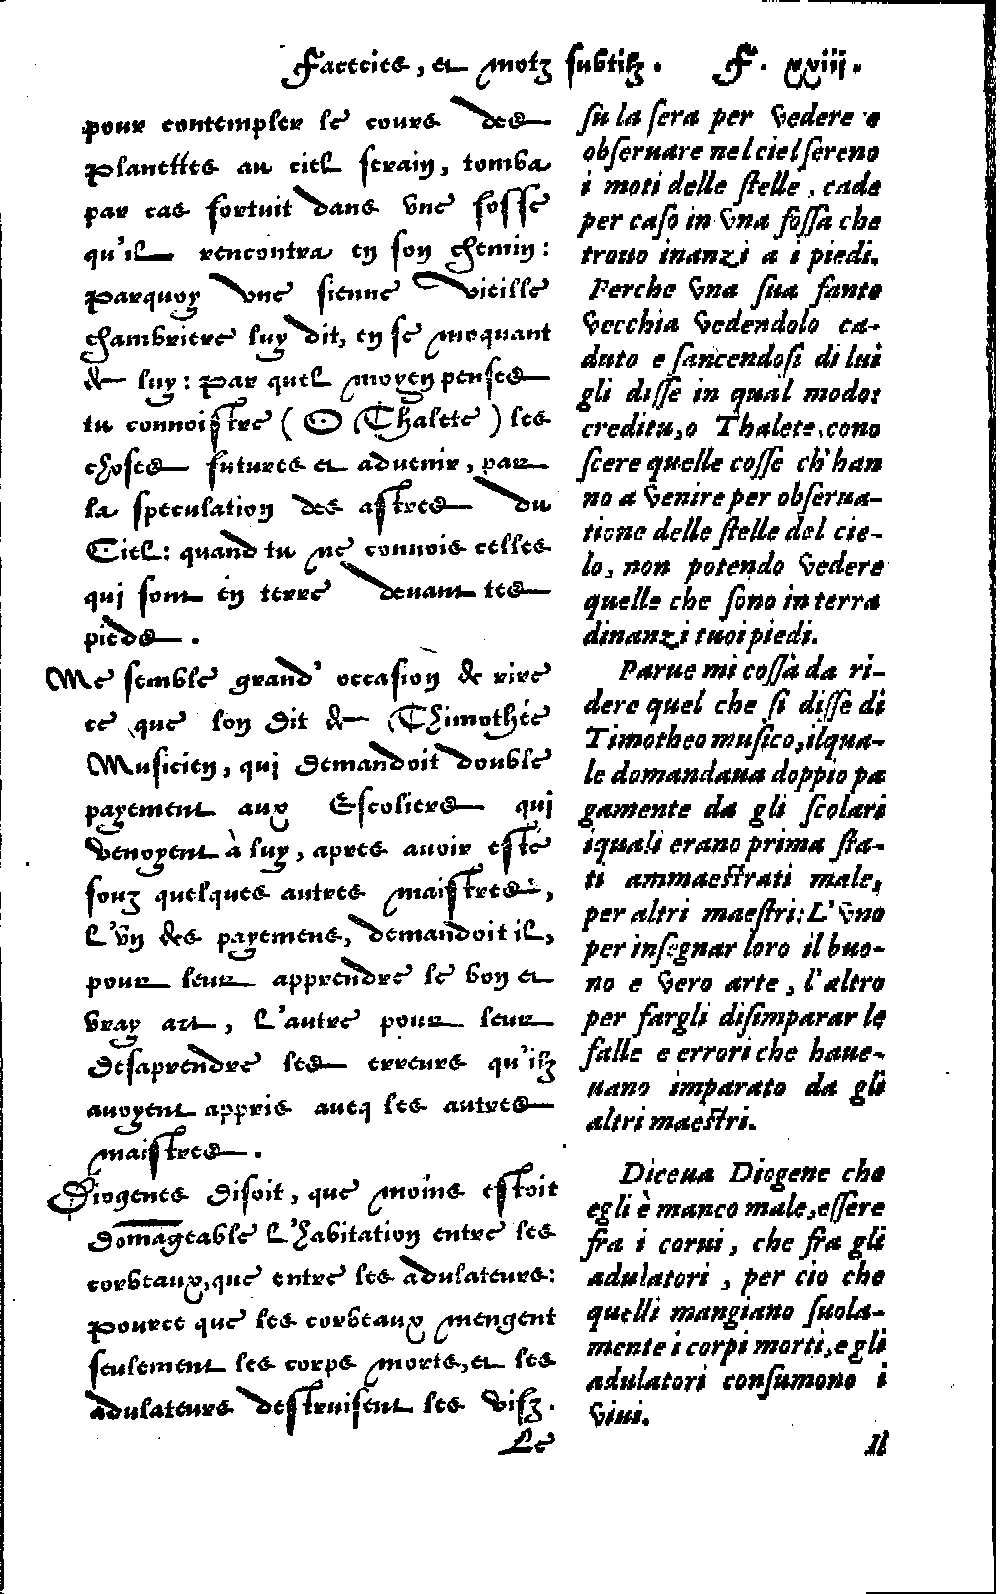 Facecies, et motz subtilz. F. xxiij.
pour contempler le cours des
planettes au ciel serain, tomba
par cas fortuit dans vne fosse
qu'il rencontra en son chemin:
parquoy vne sienne vieille
chambriere luy dit, en se moquant
de luy: par quel moyen penses
tu connoistre (O Thalete) les
choses futures et aduenir, par
la speculation des astres du
Ciel: quand tu ne connois celles
qui sont en terre deuant tes
piedz.
Me semble grand' occasion de rire
ce que lon dit de Thimothée
Musicien, qui demandoit double
payement aux Escoliers qui
venoyent à luy, apres auoir esté
souz quelques autres maistres,
L'vn des payemens, demandoit il,
pour leur apprendre le bon et
vray art, L'autre pour leur
desaprendre les erreurs qu'ilz
auoyent appris aueq les autres
maistres.
Diogenes disoit, que moins estoit
domageable L'habitation entre les
corbeaux, que entre les adulateurs:
pource que les corbeaux mengent
seulement les corps morts, et les
adulateurs destruisent les visz.
Le
su la sera per vedere e
obseruare nel ciel sereno
i moti delle stelle, cade
per caso in vna fossa che
trouo inanzi a i piedi.
Perche vna sua fante
vecchia vedendolo ca-
duto e fancendosi di lui
gli disse in qual modo:
creditu, o Thalete, cono
scere quelle cosse ch'han
no a venire per obserua-
tione delle stelle del cie-
lo, non potendo vedere
quelle che sono in terra
dinanzi tuoi piedi.
Parue mi cossa da ri-
dere quel che si disse di
Timotheo musico, ilqua-
le domandaua doppio pa
gamente da gli scolari
iquali erano prima sta-
ti ammaestrati male,
per altri maestri: L'vno
per insegnar loro il buo-
no e vero arte, l'altro
per fargli disimparar le
falle e errori che haue-
uano imparato da gli
altri maestri.
Diceua Diogene che
egli è manco male, essere
fra i corui, che fra gli
adulatori, per cio che
quelli mangiano suola-
mente i corpi morti, e gli
adulatori consumono i
viui.
Il